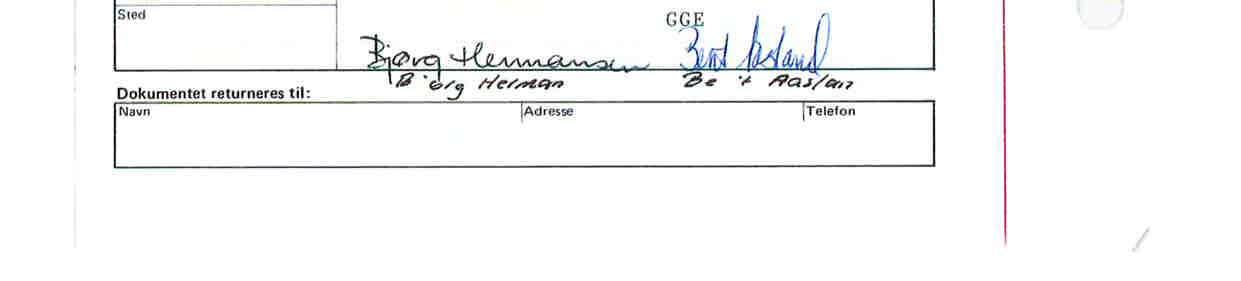 Sted
GGE
Bjørg Hermansen Bent Aasland
B ørg Herman Be t Aaslan
Dokumentet returneres til:
Navn Adresse Telefon